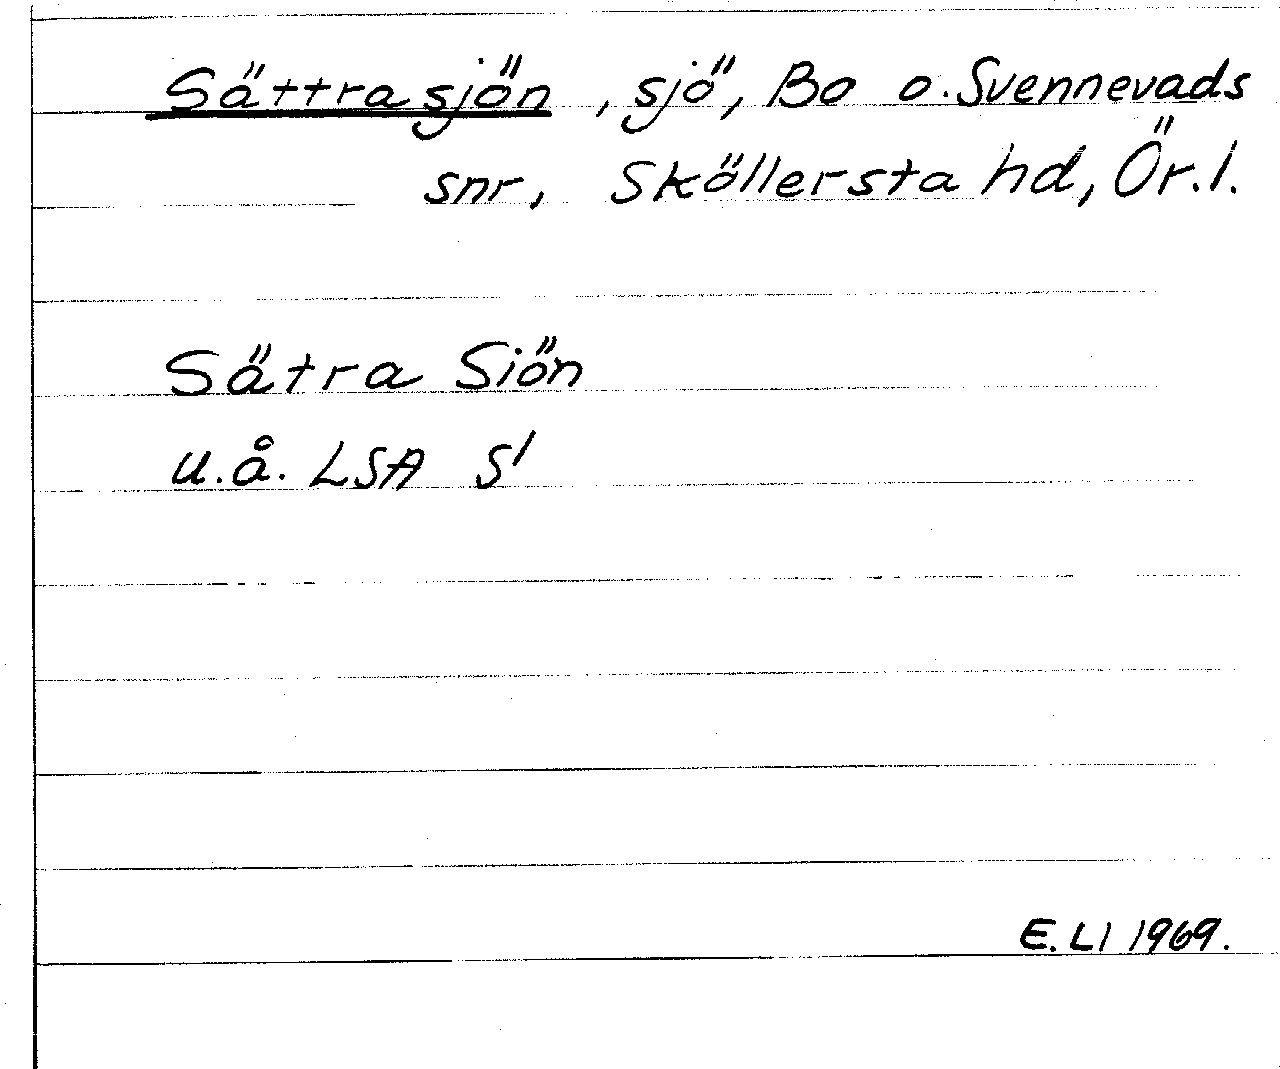 Sättrasjön, sjö, Bo o. Svennevads
snr, Sköllersta hd, Ör.l.
Sätra Siön
u.å. LSA S1
E. LI 1969.